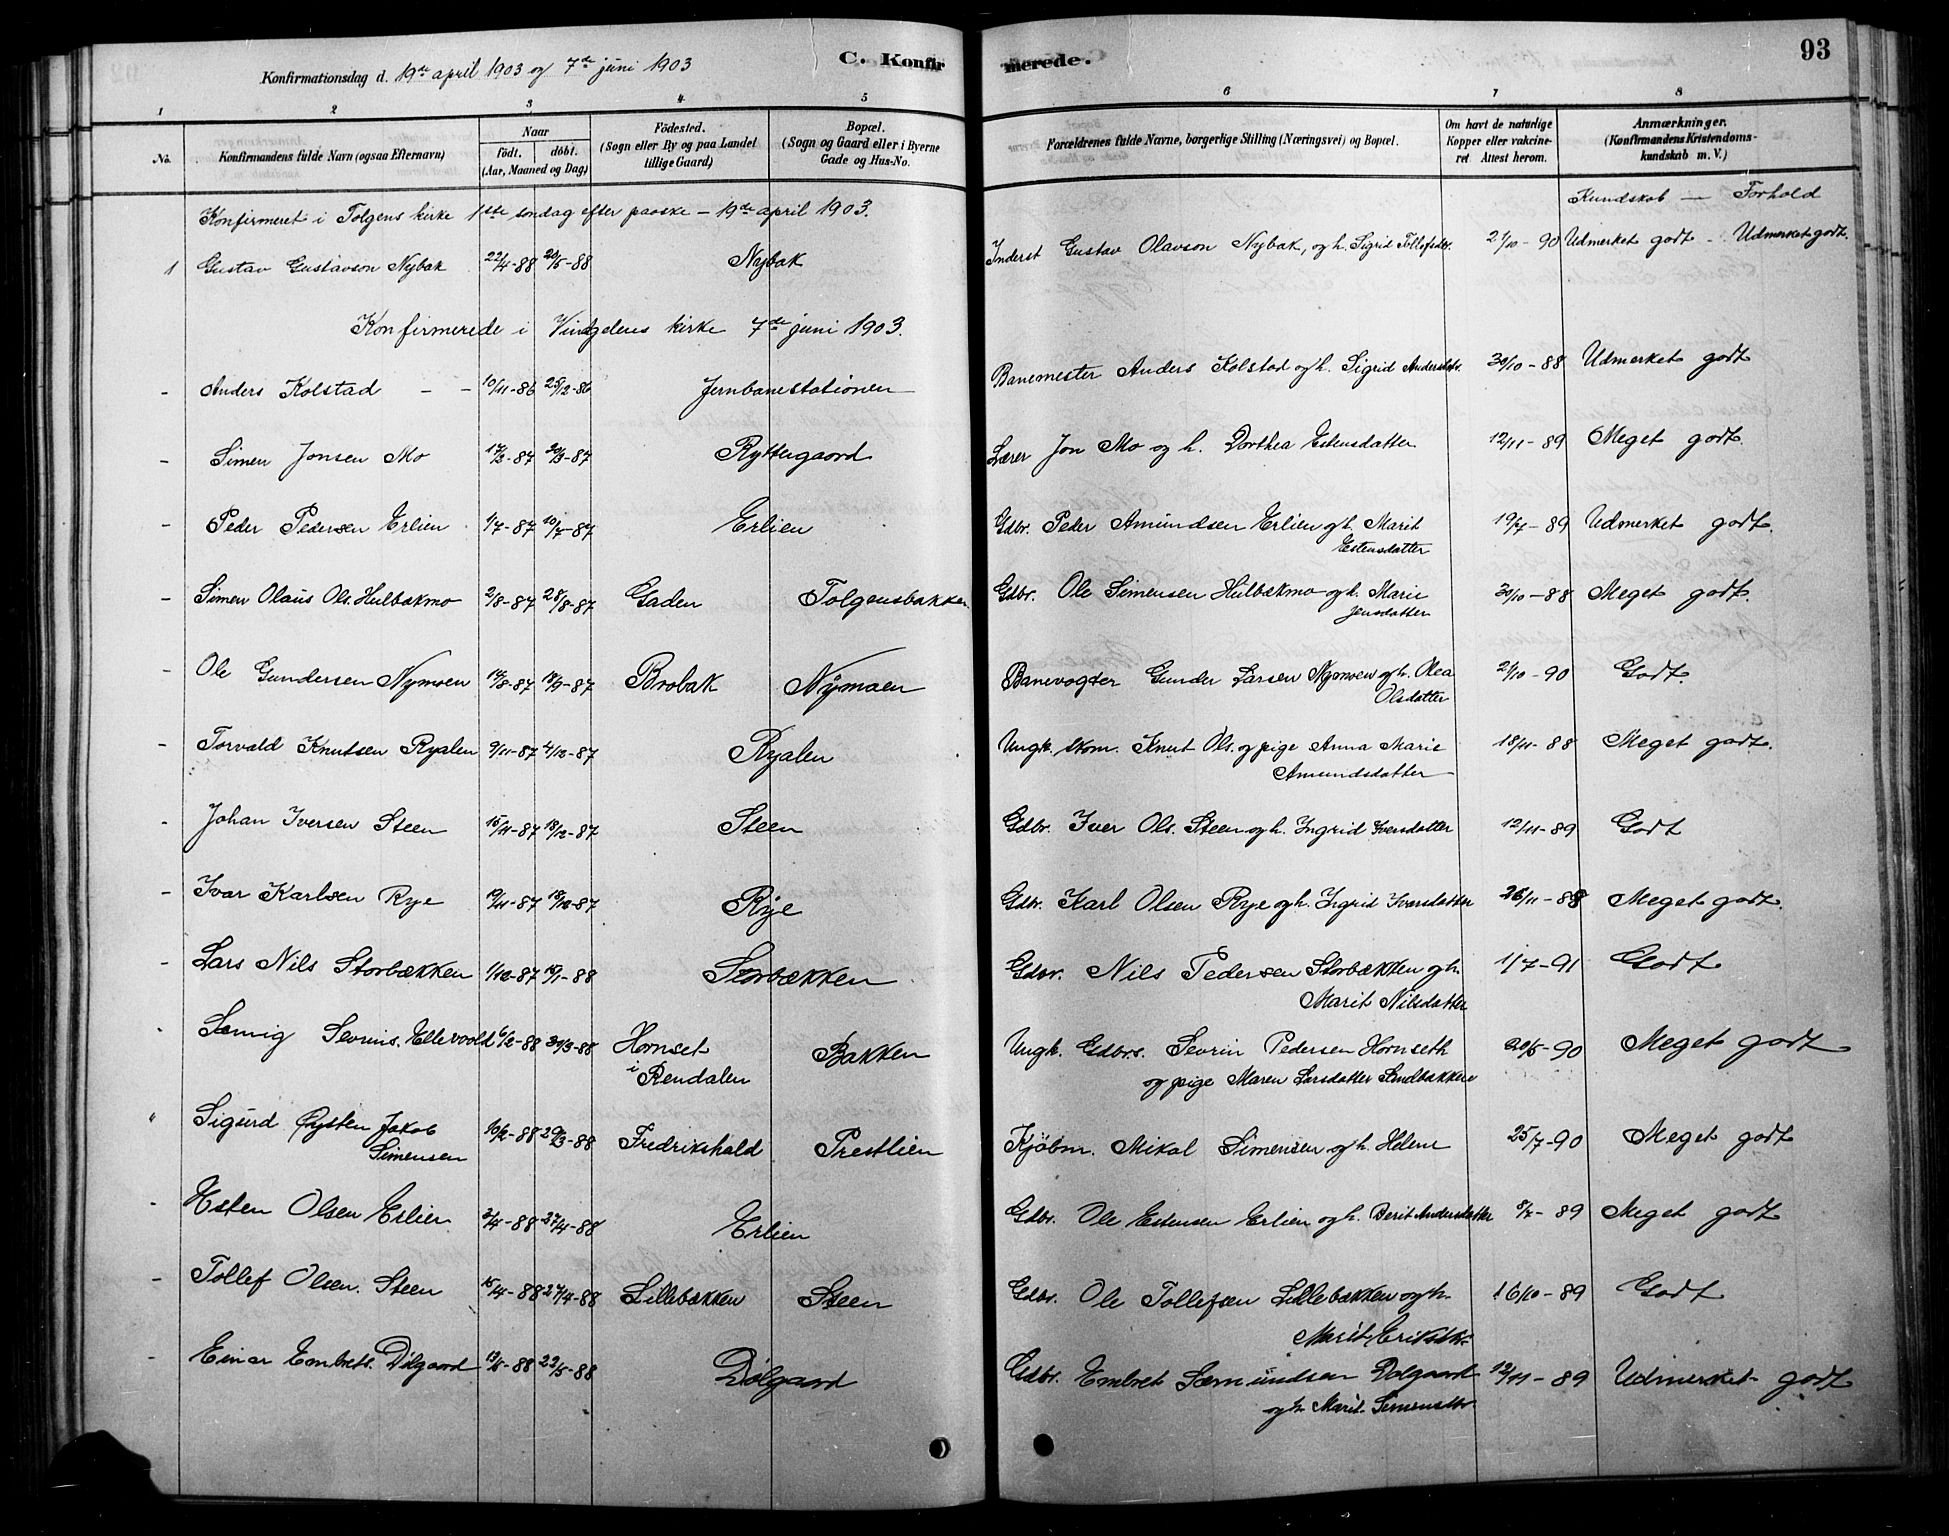 93
C. Konfirmerede.
Konfirmationsdag d. 19de april 1903 og 7de juni 1903
1 2 3 4 5 6 7 8
No.
Konfirmandens fulde Navn (ogsaa Efternavn)
Naar
födt. döbt.
(Aar, Maaned og Dag)
Födested.
(Sogn eller By og paa Landet
tillige Gaard)
Bopæl.
(Sogn og Gaard eller i Byerne
Gade og Hus-No.
Forældrenes fulde Navne, borgerlige Stilling (Næringsvei) og Bopæl.
Om havt de naturlige
Kopper eller vakcine-
ret Attest herom.
Anmærkninger.
(Konfirmandens Kristendoms-
kundskab m. V.)
Konfirmeret i Tolgens kirke 1ste søndag efter paaske – 19de april 1903. Kundskab — Forhold
1 Gustav Gustavson Nybak 22/4-88 20/5-88 Nybak Inderst Gustav Olavson Nybak, og h. Sigrid Tollefsdtr. 21/10-90 Udmerket godt - Udmerket godt.
Konfirmerede i Vingelens kirke 7de juni 1903.
- Anders Kolstad - - 10/11-86 25/12-86 Jernbanestationen Banemester Anders Kolstad og h. Sigrid Andersdtr. 30/10-88 Udmerket godt
- Simen Jonsen Mo 17/2-87 20/3-87 Ryttergaard Lærer Jon Mo og h. Dorthea Estensdatter 12/11-89 Meget godt
- Peder Pedersen Erlien 1/7-87 10/7-87 Erlien Gdbr. Peder Amundsen Erlien og h. Marit 19/7-89 Udmerket godt.
Estensdatter
- Simen Olaus Ols. Hulbækmo 2/8-87 28/8-87 Gaden Tolgensbakken Gdbr. Ole Simensen Hulbækmo og h. Marie 30/10-88 Meget godt.
Jensdatter
- Ole Gundersen Nymoen 14/8-87 18/9-87 Brobak Nymoen Banevogter Gunder Larsen Nymoen og h. Olea 21/10-90 Godt.
Olsdatter
- Torvald Knutsen Ryalen 9/11-87 4/12-87 Ryalen Ungk. skom. Knut Ols. og pige Anna Marie 18/11-88 Meget godt.
Amundsdatter
- Johan Iversen Steen 15/11-87 18/12-87 Steen Gdbr. Iver Ols. Steen og h. Ingrid Iversdatter 12/11-89 Godt
- Ivar Karlsen Rye 19/11-87 18/12-87 Rye Gdbr. Karl Olsen Rye og h. Ingrid Ivarsdatter 26/11-88 Meget godt.
- Lars Nils Storbækken 1/12-87 15/1-88 Storbækken Gdbr. Nils Pedersen Storbækken og h. 1/7-91 Godt
Marit Nilsdatter
Sevrins. Ellevold 6/2-88 30/3-88 Hornset Bakken Ungk. Gdbrs. Sevrin Pedersen Hornseth 20/5-90 Meget godt
i Rendalen og pige Maren Larsdatter
" Sigurd Øysten Jakob 10/2-88 29/3-88 Fredrikshald Prestlien Kjöbm. Mikal Simensen og h. Helene 25/7-90 Meget godt
Simensen
- Esten Olsen Erlien 2/4-88 27/4-88 Erlien Gdbr. Ole Estensen Erlien og h. Berit Andersdatter 8/7-89 Meget godt
- Tollef Olsen Steen 15/4-88 27/4-88 Lillebækken Steen Gdbr. Ole Tollefsen Lillebækken og h. 16/10-89 Godt
Marit Eriksdtr.
- Einar Embrets. Dölgaard 13/5-88 23/5-88 Dölgaard Gdbr. Embret Sæmundsen Dolgaard 12/11-89 Udmerket godt
og h. Marit Simensdtr.